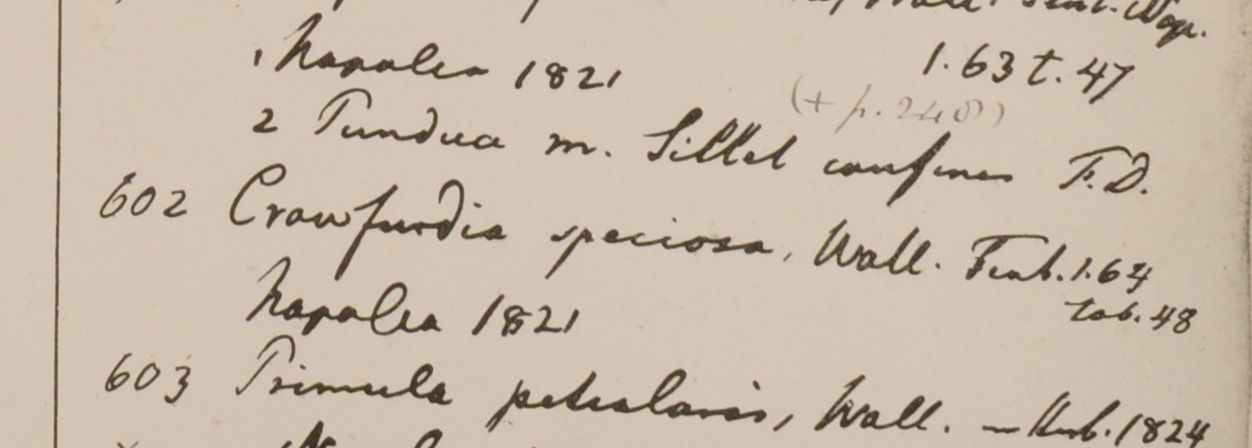 Wall. Tent. Nep.
1 Napalia 1821 1. 63 t. 47
(+ p. 248)
2 Pundua m. Sillet confines F.D.
602 Crawfurdia speciosa, Wall. Tent. 1. 64
tab. 48
Napalia 1821
603 Primula petiolaris, Wall. Herb. 1824